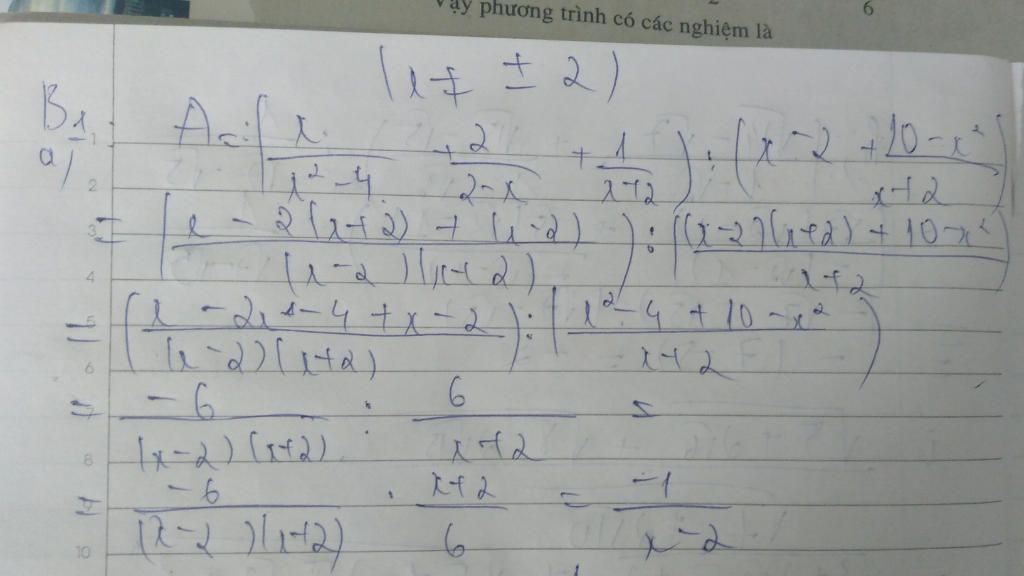 Vậy phương trình có các nghiệm là
6
(x ≠ ± 2)
B1
a) A = (x/(x² - 4) + 2/(2 - x) + 1/(x+2)) : (x - 2 + (10 - x²)/(x+2))
= ((x - 2(x+2) + (x-2))/((x-2)(x+2))) : (((x-2)(x+2) + 10 - x²)/(x+2))
= ((x - 2x - 4 + x - 2)/((x-2)(x+2))) : ((x² - 4 + 10 - x²)/(x+2))
= -6/((x-2)(x+2)) : 6/(x+2) =
= -6/((x-2)(x+2)) . (x+2)/6 = -1/(x-2)
1
2
3
4
5
6
7
8
9
10